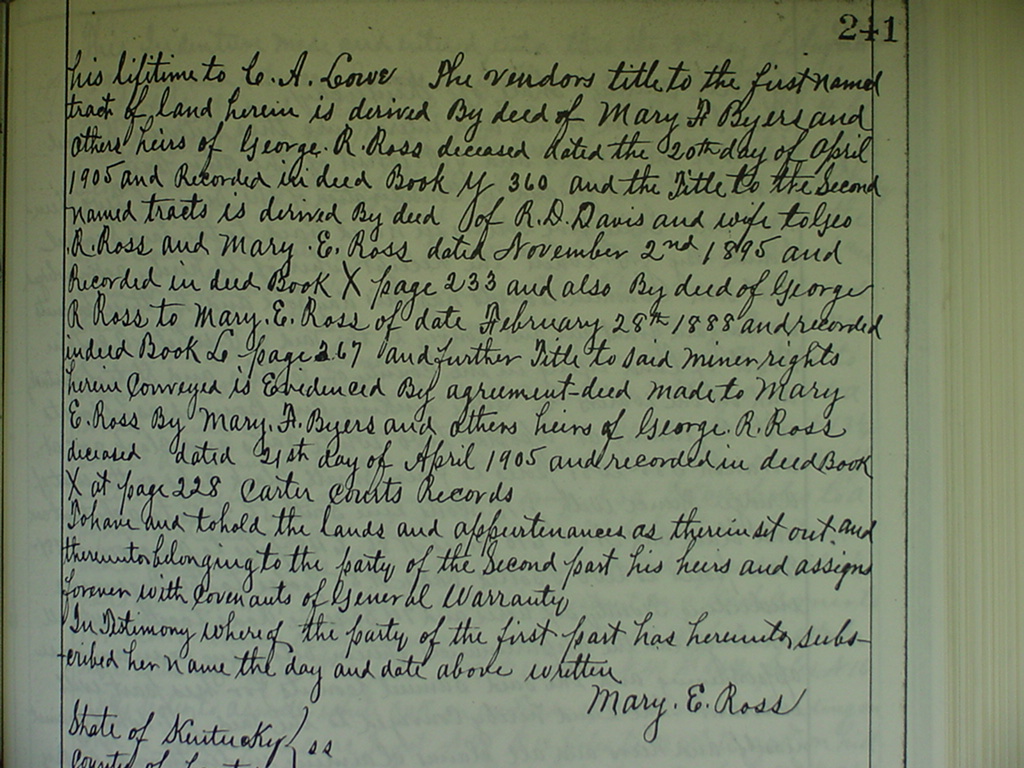 241
his lifitime to C. A. Lowe The vendors title to the first named
tract of land herein is derived By deed of Mary F Byers and
others heirs of George. R. Ross deceased dated the 20th day of April
1905 and Recorded in deed Book Y 360 and the Title to the Second
named tracts is derived By deed of R. D. Davis and wife to Geo
.R. Ross and Mary .E. Ross dated November 2nd 1895 and
Recorded in deed Book X page 233 and also By deed of George
R Ross to Mary. E. Ross of date February 28th 1888 and recorded
in deed Book L page 267 and further Title to said miner rights
herein Conveyed is Evidenced By agreement-deed made to Mary
E. Ross By Mary. F. Byers and others heirs of George. R. Ross
deceased dated 21st day of April 1905 and recorded in deed Book
X at page 228 Carter Courts Records
To have and to hold the lands and appurtenances as therein set out. and
thereunto belonging to the party of the Second part his heirs and assigns
forever with Covenants of General Warranty
In Testimony whereof the party of the first part has hereunto subs-
-cribed her name the day and date above written
Mary. E. Ross
State of Kentucky } ss
County of